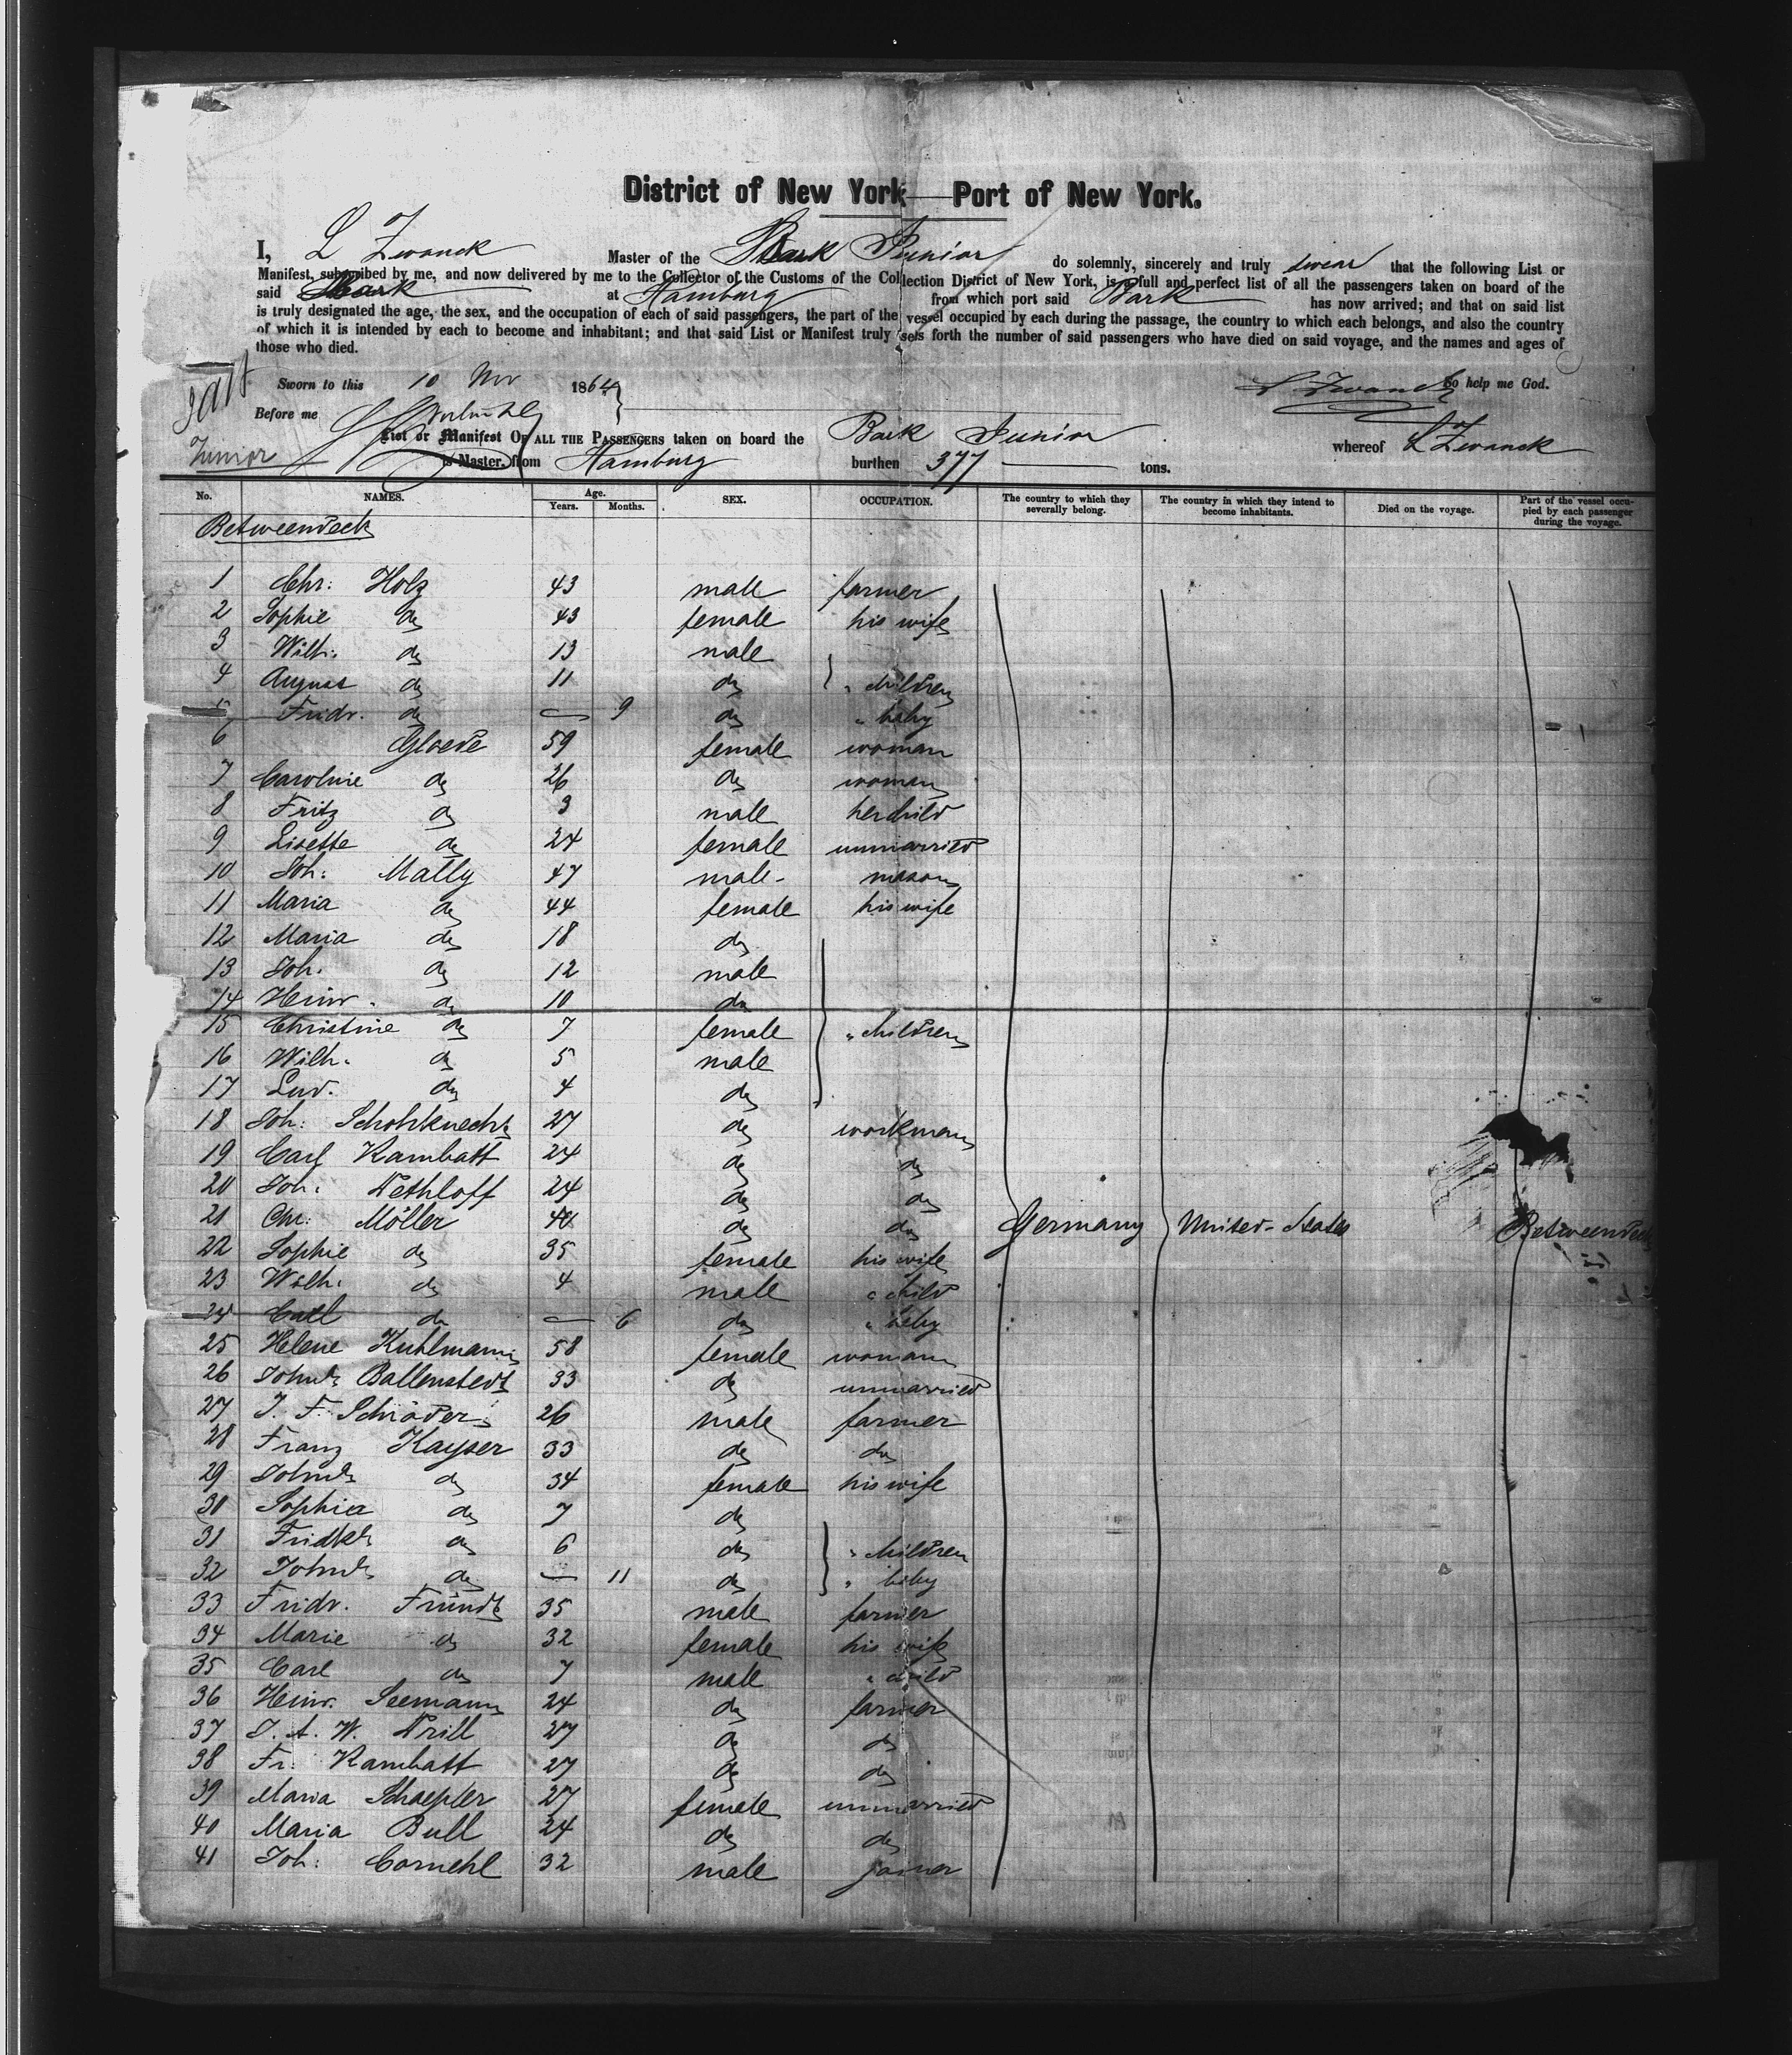 District of New York — Port of New York.
I, L Zwanck Master of the Bark Junior do solemnly, sincerely and truly swear that the following List or
Manifest, subscribed by me, and now delivered by me to the Collector of the Customs of the Collection District of New York, is a full and perfect list of all the passengers taken on board of the
said Bark at Hamburg from which port said Bark has now arrived; and that on said list
is truly designated the age, the sex, and the occupation of each of said passengers, the part of the vessel occupied by each during the passage, the country to which each belongs, and also the country
of which it is intended by each to become and inhabitant; and that said List or Manifest truly sets forth the number of said passengers who have died on said voyage, and the names and ages of
those who died.
Sworn to this 10 Nov 1864 L Zwanck So help me God.
Before me
List or Manifest OF ALL THE PASSENGERS taken on board the Bark Junior whereof L Zwanck
Junior is Master, from Hamburg burthen 377 tons.
No. NAMES. Age. Years. Months. SEX. OCCUPATION. The country to which they severally belong. The country in which they intend to become inhabitants. Died on the voyage. Part of the vessel occupied by each passenger during the voyage.
Betweendeck
1 Chr: Holz 43 male farmer
2 Sophie do 43 female his wife
3 Wilh. do 13 male
4 August do 11 do " children
5 Fridr. do — 9 do " baby
6 Gloede 59 female woman
7 Caroline do 26 do woman
8 Fritz do 3 male her child
9 Lisette do 24 female unmarried
10 Joh: Mally 47 male mason
11 Maria do 44 female his wife
12 Maria do 18 do
13 Joh. do 12 male
14 Heinr. do 10 do
15 Christine do 7 female " children
16 Wilh. do 5 male
17 Lud. do 4 do
18 Joh: Schohknecht 27 do workman
19 Carl Kambatt 24 do do
20 Joh: Dethloff 24 do do
21 Chr: Möller 44 do do Germany United-States Betweendeck
22 Sophie do 35 female his wife
23 Wilh. do 4 male " child
24 Carl do — 6 do " baby
25 Helene Kuhlmann 58 female woman
26 Johnde Ballenstedt 33 do unmarried
27 J. F. Schröder 26 male farmer
28 Franz Kayser 33 do do
29 Johnde do 34 female his wife
30 Sophia do 7 do
31 Fridke do 6 do " children
32 Johnde do — 11 do " baby
33 Fridr. Fründt 35 male farmer
34 Marie do 32 female his wife
35 Carl do 7 male " child
36 Heinr. Seemann 24 do farmer
37 J. A. W. Prill 27 do do
38 Fr: Kambatt 27 do do
39 Maria Schaepler 27 female unmarried
40 Maria Bull 24 do do
41 Joh: Cornehl 32 male joiner